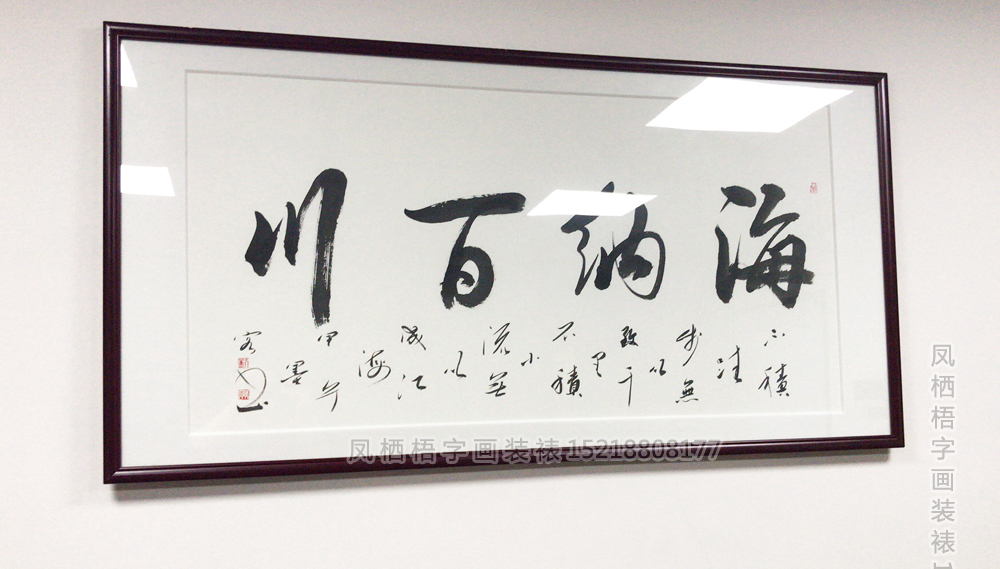 海納百川
不積
跬
步無
以
致千
里
不積
小
流無
以
成江
海
甲午
墨
客
凤栖梧字画装裱 15218808177
凤栖梧字画装裱